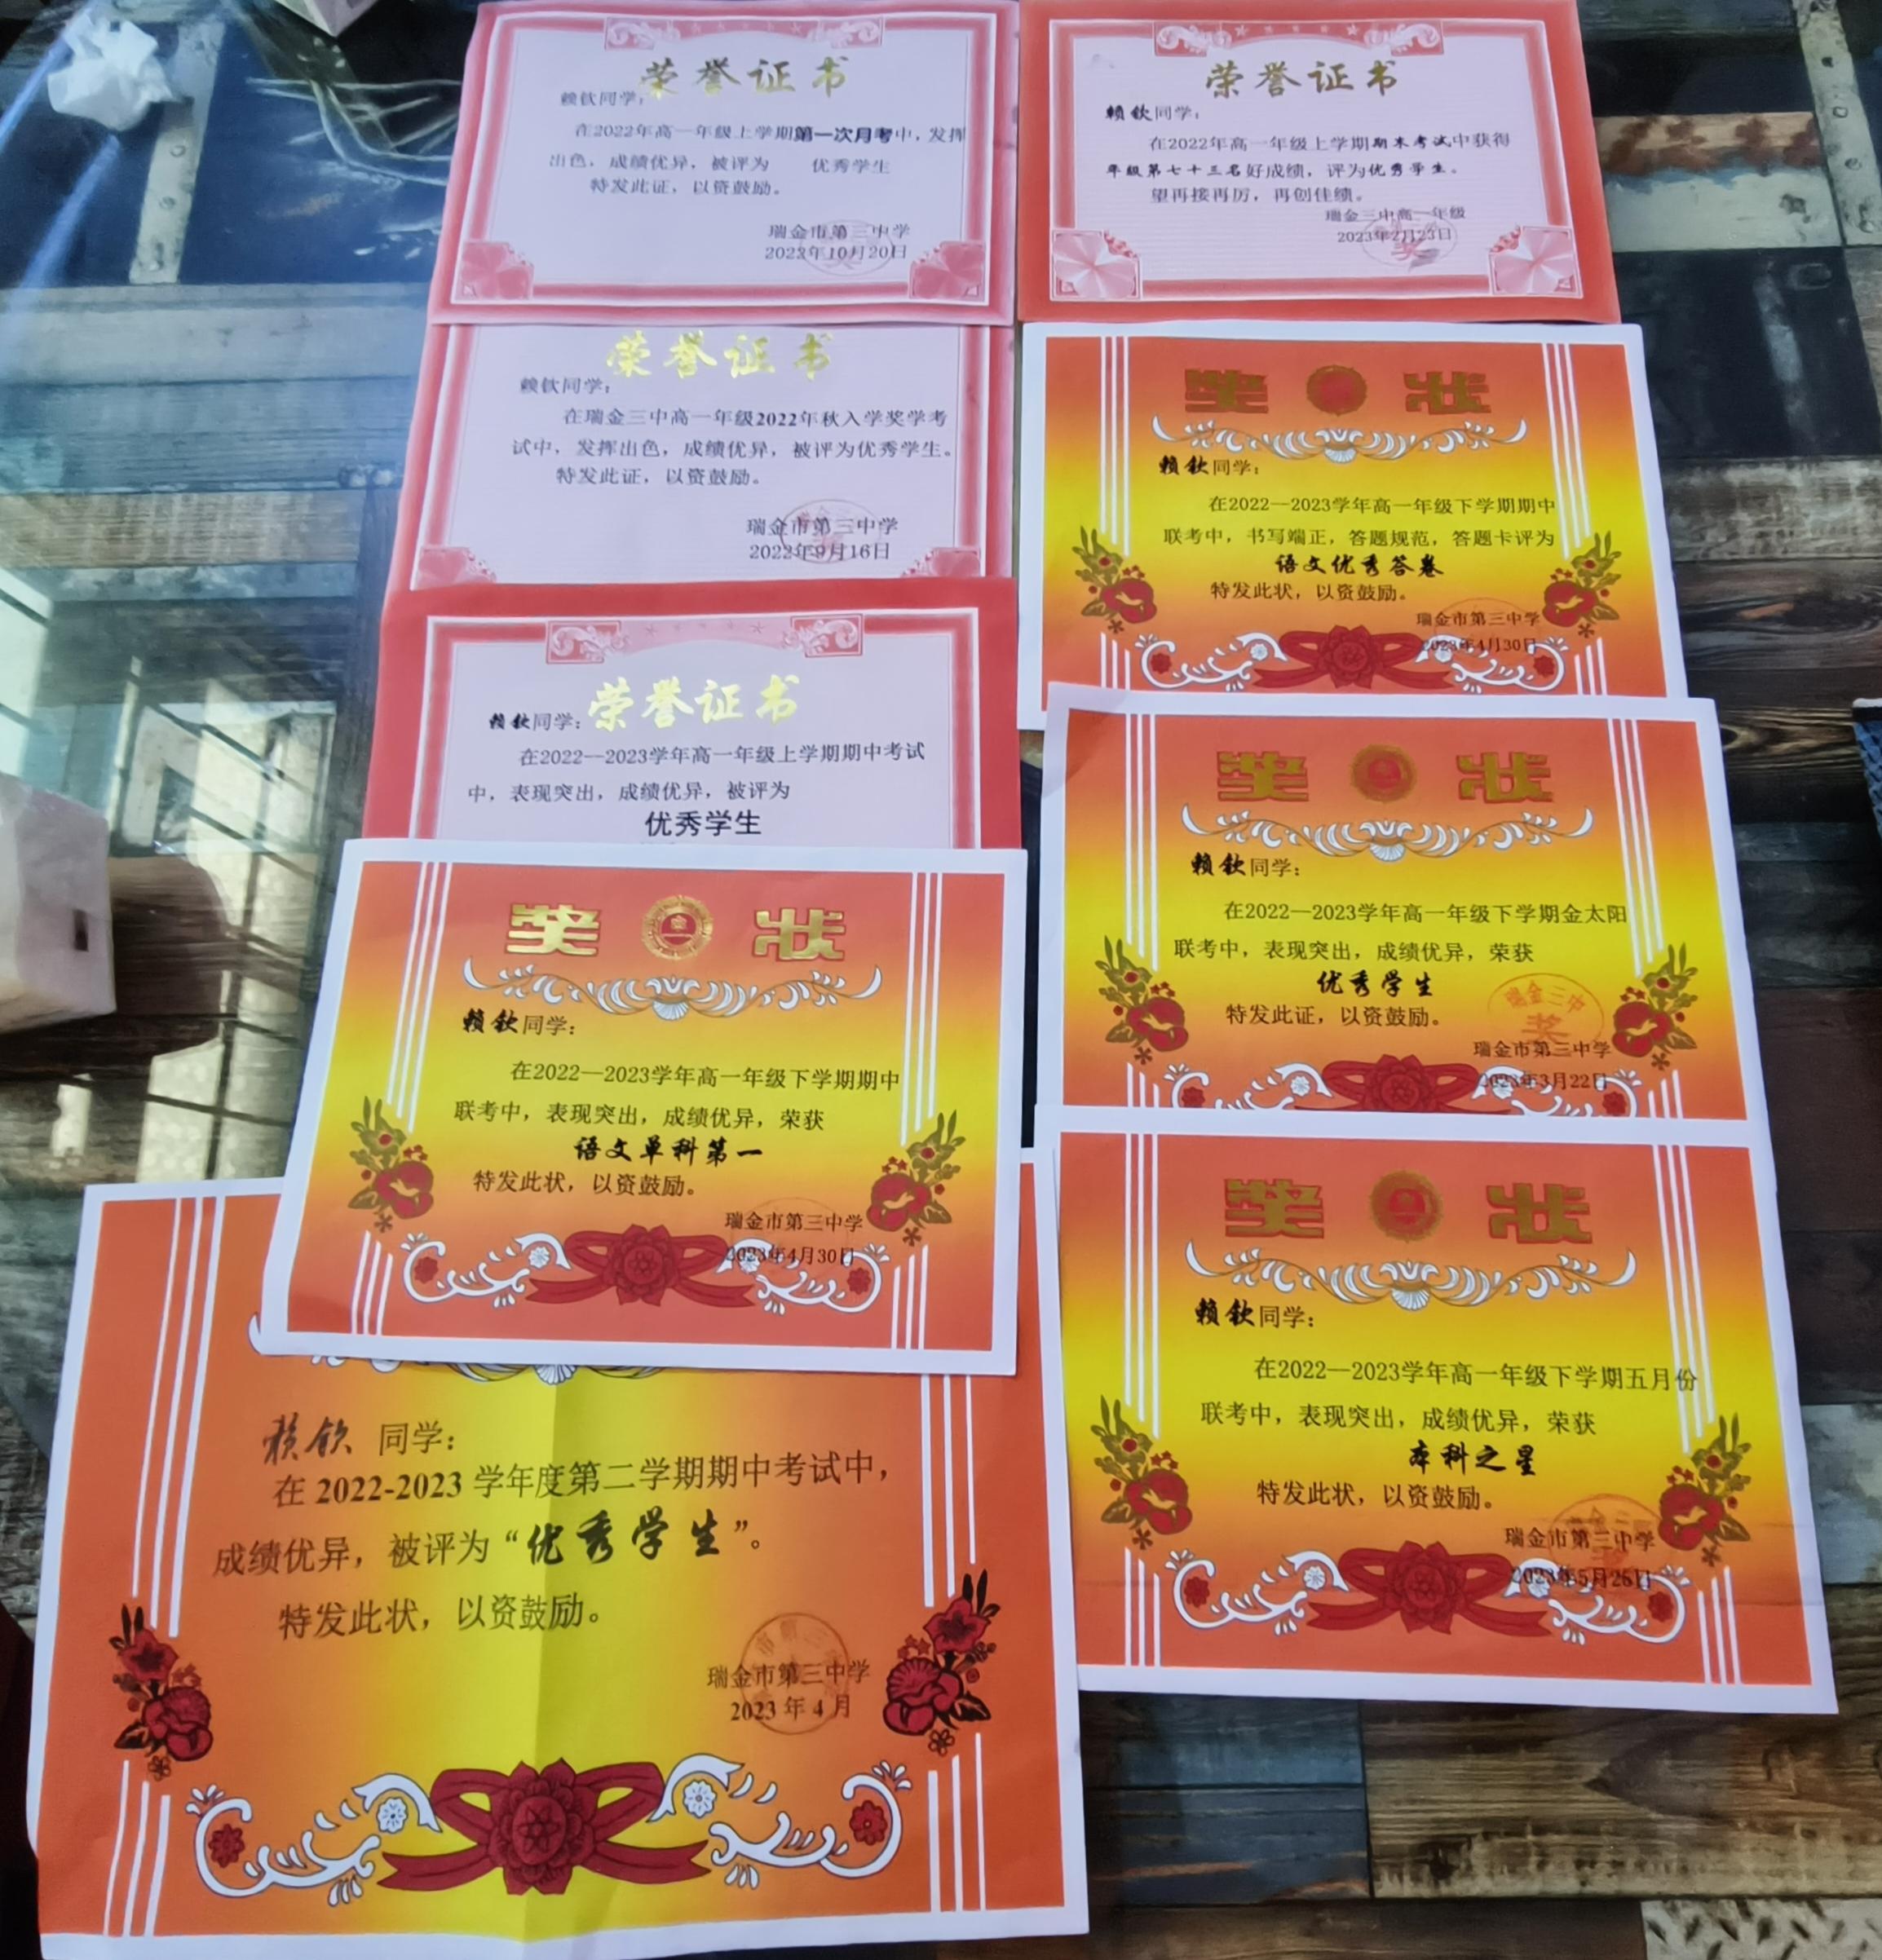 荣誉证书
赖钦同学：
在2022年高一年级上学期第一次月考中，发挥
出色，成绩优异，被评为 优秀学生
特发此证，以资鼓励。
瑞金市第三中学
2022年10月20日
荣誉证书
赖钦同学：
在2022年高一年级上学期期末考试中获得
年级第七十三名好成绩，评为优秀学生。
望再接再厉，再创佳绩。
瑞金三中高一年级
2023年2月23日
荣誉证书
赖钦同学：
在瑞金三中高一年级2022年秋入学奖学考
试中，发挥出色，成绩优异，被评为优秀学生。
特发此证，以资鼓励。
瑞金市第三中学
2022年9月16日
奖状
赖钦同学：
在2022—2023学年高一年级下学期期中
联考中，书写端正，答题规范，答题卡评为
语文优秀答卷
特发此状，以资鼓励。
瑞金市第三中学
2023年4月30日
荣誉证书
赖钦同学：
在2022—2023学年高一年级上学期期中考试
中，表现突出，成绩优异，被评为
优秀学生
奖状
赖钦同学：
在2022—2023学年高一年级下学期金太阳
联考中，表现突出，成绩优异，荣获
优秀学生
特发此证，以资鼓励。
瑞金三中
奖
瑞金市第三中学
2023年3月22日
奖状
赖钦同学：
在2022—2023学年高一年级下学期期中
联考中，表现突出，成绩优异，荣获
语文单科第一
特发此状，以资鼓励。
瑞金市第三中学
2023年4月30日
奖状
赖钦同学：
在2022—2023学年高一年级下学期五月份
联考中，表现突出，成绩优异，荣获
本科之星
特发此状，以资鼓励。
瑞金市第三中学
赖钦 同学：
在 2022-2023 学年度第二学期期中考试中，
成绩优异，被评为“优秀学生”。
特发此状，以资鼓励。
瑞金市第三中学
2023 年 4 月